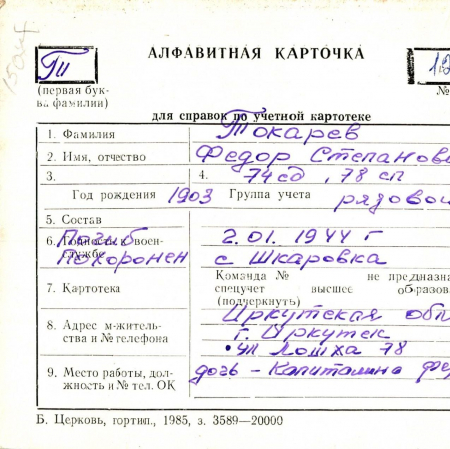 АЛФАВИТНАЯ КАРТОЧКА
(первая бук-
ва фамилии)
№
для справок по учетной картотеке
1. Фамилия Токарев
2. Имя, отчество Федор Степанови
3. 4. 74 сд, 78 сп
Год рождения 1903 Группа учета рядовой
5. Состав
Погиб 2.01.1944 г
6. Годность к воен-
службе
Похоронен с Шкаровка
Команда № не предназна
7. Картотека спецучет высшее образова
(подчеркнуть)
Иркутская обл
8. Адрес м-житель- г. Иркутск
ства и № телефона ул Лошха 78
9. Место работы, дол- дочь - Капиталина Фе
жность и № тел. ОК
Б. Церковь, гортип., 1985, з. 3589—20000